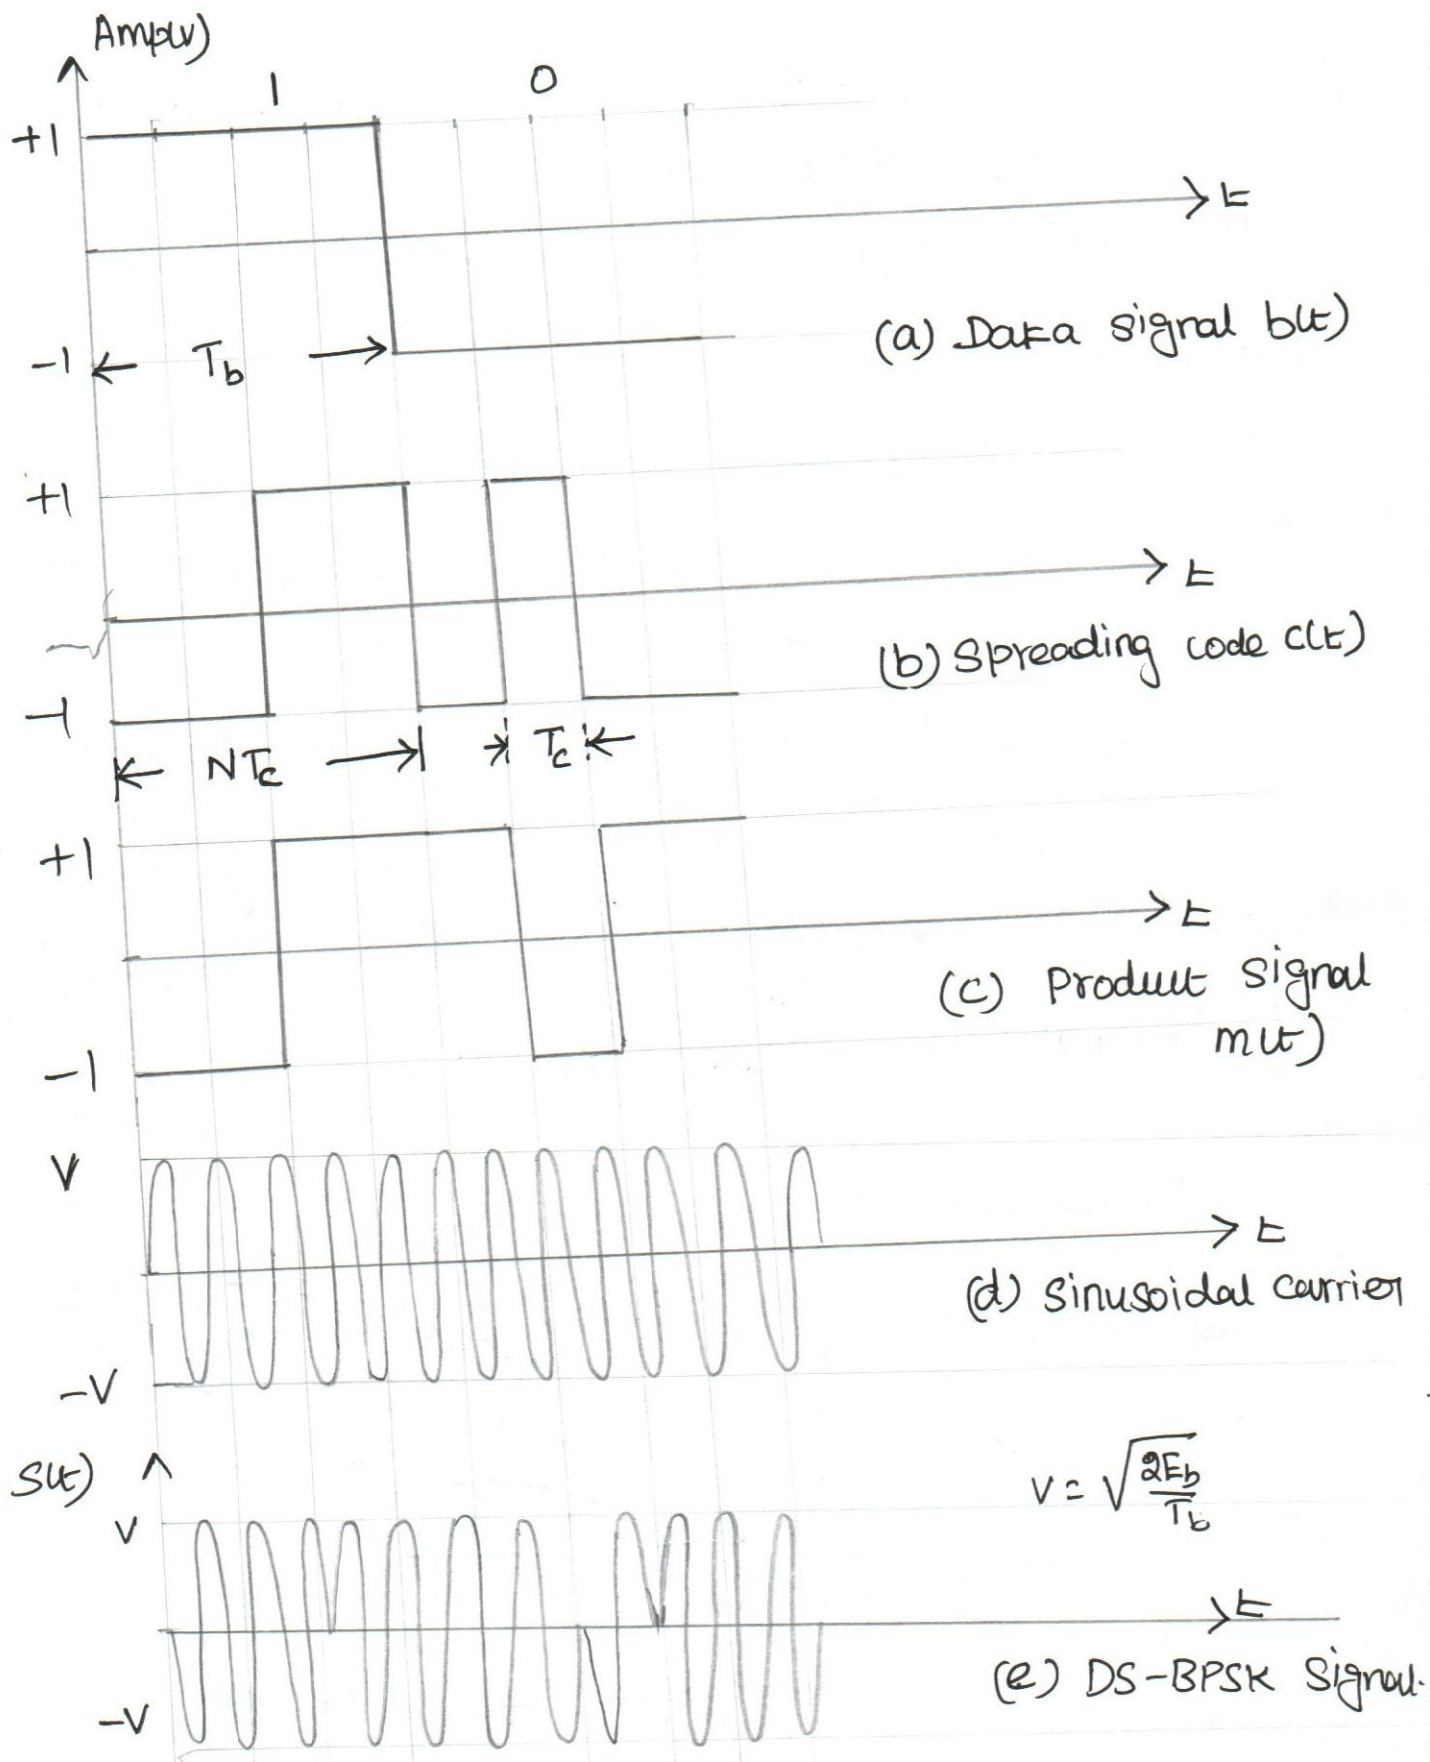 Amp(v)
1 0
+1
t
(a) Data signal b(t)
-1 Tb
+1
t
(b) Spreading code c(t)
-1
NTc Tc
+1
t
(c) Product signal
m(t)
-1
V
t
(d) Sinusoidal carrier
-V
V = √2Eb/Tb
S(t)
V
t
(e) DS-BPSK Signal.
-V